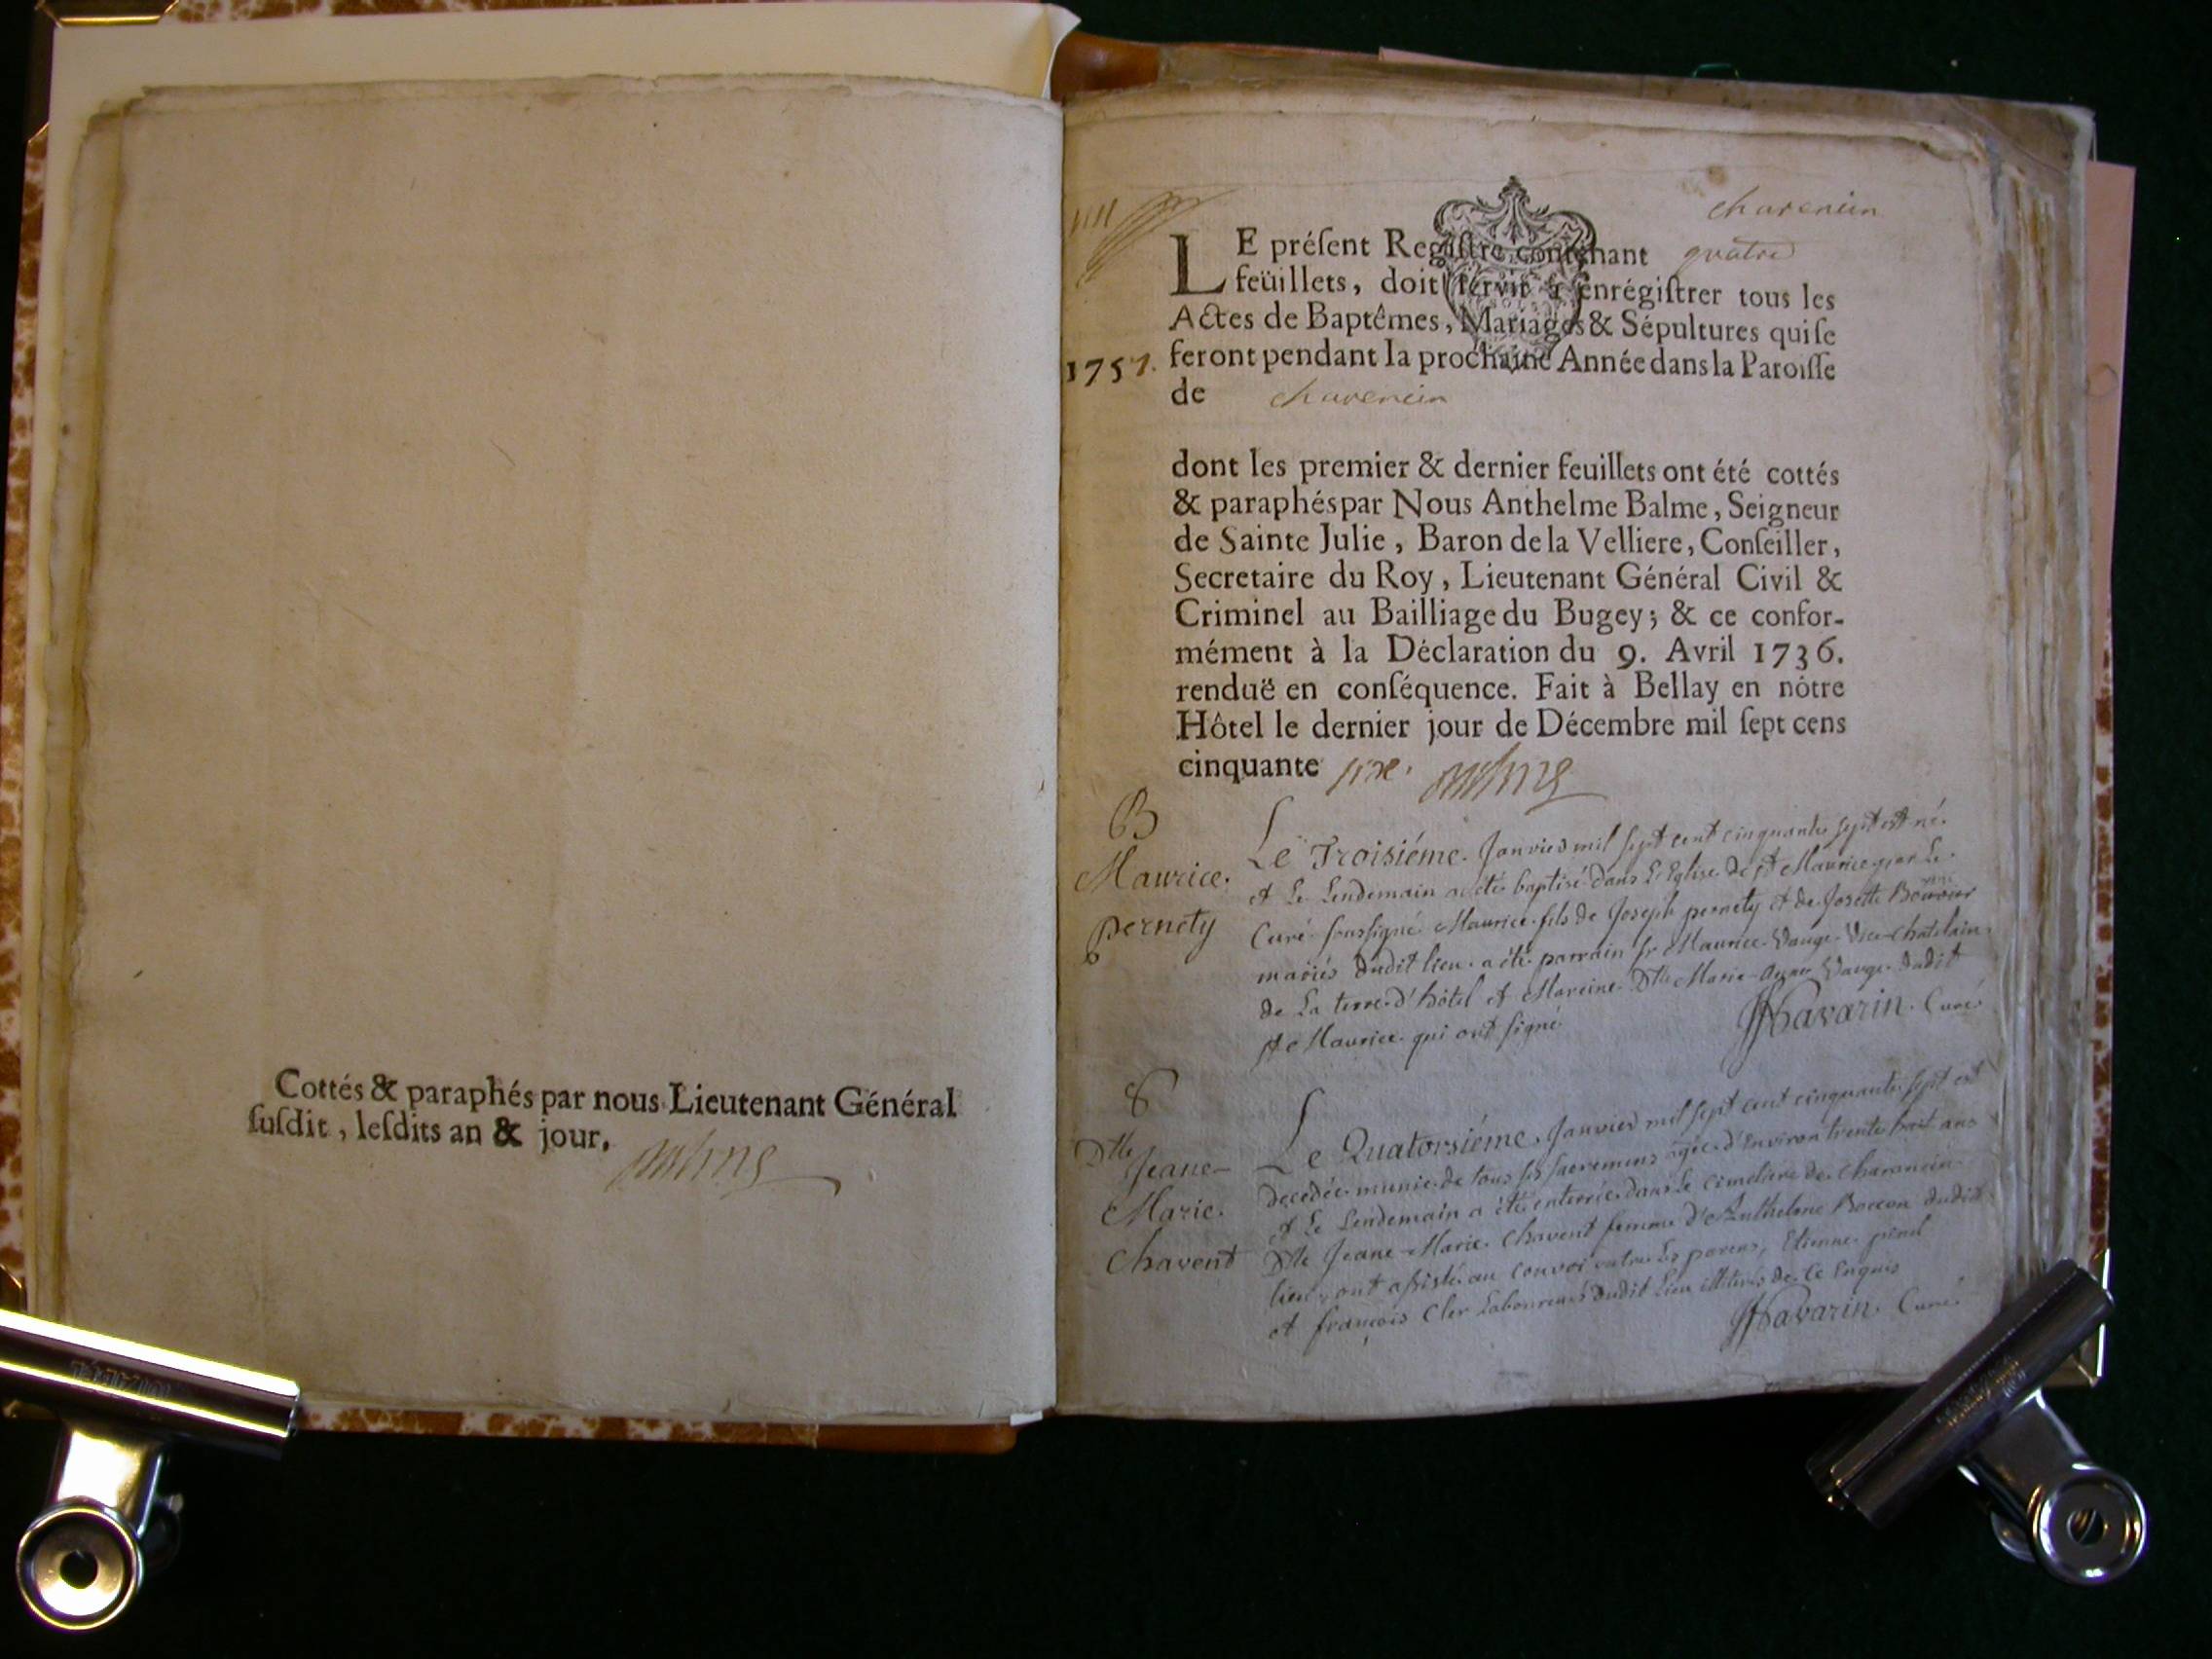 Cottés & paraphés par nous Lieutenant Général
ſuſdit, leſdits an & jour.
charenein
LE préſent Regiſtre contenant quatre
feüillets, doit ſervir à enrégiſtrer tous les
Actes de Baptêmes, Mariages & Sépultures qui ſe
1757. feront pendant la prochaine Année dans la Paroiſſe
de charenein
dont les premier & dernier feuillets ont été cottés
& paraphés par Nous Anthelme Balme, Seigneur
de Sainte Julie, Baron de la Velliere, Conſeiller,
Secretaire du Roy, Lieutenant Général Civil &
Criminel au Bailliage du Bugey; & ce confor-
mément à la Déclaration du 9. Avril 1736.
renduë en conſéquence. Fait à Bellay en nôtre
Hôtel le dernier jour de Décembre mil ſept cens
cinquante six.
B
Maurice.
pernety
Le Troisiéme. Janvier mil sept cent cinquante sept est né.
et Le Lendemain a eté baptisé dans L'Eglise de st Maurice par Le
Curé soussigné Maurice fils de Joseph pernety et de Josette
mariés dudit lieu. a été parrain sr Maurice Vauge Vice-Chatelain
de La terre d'hôtel et Mareine Dlle Marie- Vauge dudit
st Maurice qui ont signé
Havarin. Curé.
S
Dlle
Jeane-
Marie.
Chavent
Le Quatorsiéme. Janvier mil sept cent cinquante sept est
decedée munie de tous ses sacremens agée d'Environ trente huit ans
et Le Lendemain a été enterrée dans Le cimetiere de Charancin
Dlle Jeane-Marie. Chavent femme d'Anthelme Boccon dudit
lieu, ont assisté au convoi outre Les parens, Etienne
et françois Cler Laboureurs dudit Lieu illiterés de ce Enquis
Havarin. Curé.